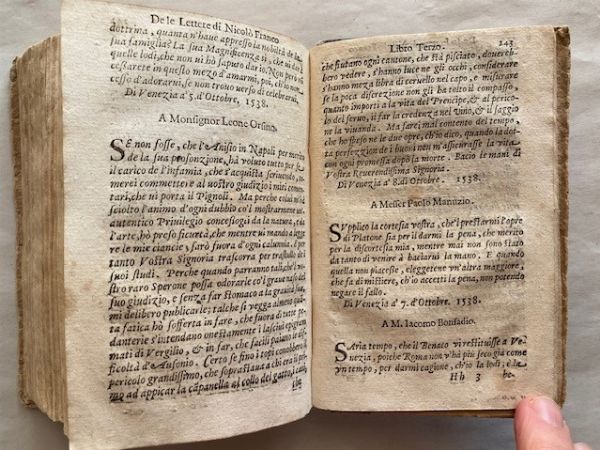 De le Lettere di Nicolò Franco
dottrina, quanta n'haue appresso la nobiltà de la
sua famiglia? La sua Magnificẽtia, che ui da
quelle lodi, che non ui hò saputo dar io. Non però
cessarete in questo mezo d'amarmi, più, ch'io non
cesso d'adorarui, se non trouo uerso di celebrarui,
Di Venetia a' 5. d'Ottobre, 1538.
A Monsignor Leone Orsino.
SE non fosse, che l'Anisio in Napoli per merito
de la sua prosonzione, hà voluto tutto per se
il carico de l'infamia, che s'acquista scriuendo, te-
merei commettere al uostro giudizio i miei comen-
tari, che ui porta il Pignoli. Ma perche colui m'hà
sciolto l'animo d'ogni dubbio co'l mostrarmene un
autentico Priuilegio concessogli da la natura, e da
l'arte, hò preso sicurtà, che mentre ui mando a legge
re le mie ciancie, sarò fuora d'ogni calumnia, e per
tanto Vostra Signoria trascorra per trastullo de
suoi studi. Perche quando parranno tali, che'l vo-
stro raro Sperone possa odorarle co'l graue naso del
suo giudizio, e senza far stomaco a la grauità sua,
mi delibero publicarle; talche si vegga almeno quan
ta fatica hò sofferta in fare, che fuora di tutte pe-
danterie s'intendano onestamente i lasciui epigram
mati di Vergilio, & in far, che facili paiano le dif-
ficoltà d'Ausonio. Certo se fino i topi conobbero il
pericolo grandissimo, che soprastaua a chi era il pri-
mo ad appicar la campanella al collo del gatto, i
Libro Terzo. 243
che fiutano ogni cantone, che stà pisciato, douereb-
bero vedere, s'hanno luce ne gli occhi, considerare
s'hanno meza libra di ceruello nel capo, e misurare
se la poca discrezione non gli ha tolto il compasso,
quanto importi a la vita del Prencipe, & al perico-
lo del seruo, il far la credenza nel vino, & il saggio
ne la viuanda. Ma sarei mal contento del tempo,
che hò speso ne le due opre, ch'io dico, quando la dot-
ta perfezzion de i buoni non m'assicurasse la vita
con ogni promessa dopò la morte. Bacio le mani di
Vostra Reuerendissima Signoria.
Di Venetia a' 8. di Ottobre. 1538.
A Messer Paolo Manuzio.
SVpplico la cortesia vostra, che'l prestarmi l'opre
di Platone sia per il darmi la pena, che merito
per la discortesia mia, mentre mai non sono stato
da tanto di venire à baciarui la mano. E quando
quella non piacesse, eleggetene vn'altra maggiore,
che fà di mistiere, ch'io accetti la pena, non potendo
negare il fallo.
Di Venetia a' 7. d'Ottobre. 1538.
A M. Iacomo Bonfadio.
SAria tempo, che il Benato vi restituisse a Ve-
nezia, poiche Roma non v'hà più seco già come
vn tempo, per darmi cagione, ch'io la lodi, e la
Hh 3 be-